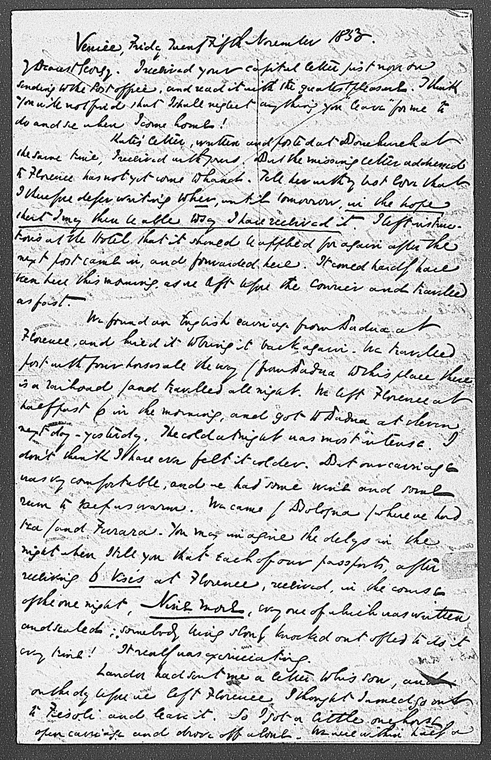 Venice, Friday Twenty Fifth November 1853.
My Dearest Georgy. I received your capital letter just now on
sending to the Post office, and read it with the greatest pleasure. I think
you will not find that I shall neglect anything you leave for me to
do and see when I come home!
Kate's letter, written and posted at Bonchurch at
the same time, I received with yours. But the missing letter addressed
to Florence has not yet come to hand. Tell her with my best love that
I therefore defer writing to her, until tomorrow, in the hope
that I may then be able to say I have received it. I left instruc-
tions at the Hotel, that it should be applied for again after the
next post came in, and forwarded here. It could hardly have
been here this morning, as we left before the Courier and travelled
as fast.
We found an English carriage from Padua at
Florence, and hired it to bring it back again. We travelled
post with four horses all the way (from Padua to this place there
is a railroad) and travelled all night. We left Florence at
half past 6 in the morning, and got to Padua at eleven
next day - yesterday. The cold at night was most intense. I
don't think I have ever felt it colder. But our carriage
was very comfortable, and we had some wine and some
rum to keep us warm. We came by Bologna (where we had
tea) and Ferrara. You may imagine the delays in the
night when I tell you that each of our passports, after
receiving 6 visas at Florence, received, in the course
of the one night, Nine more, every one of which was written
and sealed; somebody being slowly knocked out of bed to do it
every time! It really was excruciating.
Landor had sent me a letter to his son, and
on the day before we left Florence, I thought I would go out
to Fiesole and leave it. So I got a little one horse
open carriage and drove off alone. We were within half a